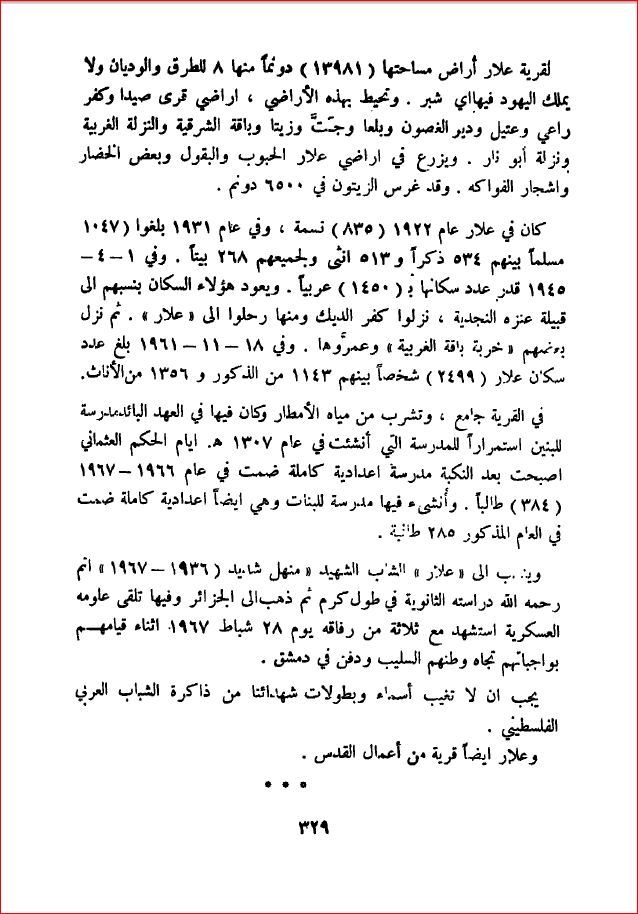 لقرية علار أراض مساحتها ( ١٣٩٨١ ) دونماً منها ٨ للطرق والوديان ولا
يملك اليهود فيها اي شبر . وتحيط بهذه الأراضي ، اراضي قرى صيدا وكفر
راعي وعتيل ودير الغصون وبلعا وجتَّ وزيتا وباقة الشرقية والنزلة الغربية
ونزلة أبو نار . ويزرع في اراضي علار الحبوب والبقول وبعض الخضار
واشجار الفواكه . وقد غرس الزيتون في ٦٥٠٠ دونم .
كان في علار عام ١٩٢٢ ( ٨٣٥ ) نسمة ، وفي عام ١٩٣١ بلغوا ( ١٠٤٧
مسلماً بينهم ٥٣٤ ذكراً و ٥١٣ انثى ولجميعهم ٢٦٨ بيتاً . وفي ١ – ٤ –
١٩٤٥ قدر عدد سكانها بـ ( ١٤٥٠ ) عربياً . ويعود هؤلاء السكان بنسبهم الى
قبيلة عنزه النجدية ، نزلوا كفر الديك ومنها رحلوا الى « علار » . ثم نزل
بعضهم « خربة باقة الغربية » وعمرَّوها . وفي ١٨ – ١١ – ١٩٦١ بلغ عدد
سكان علار ( ٢٤٩٩ ) شخصاً بينهم ١١٤٣ من الذكور و ١٣٥٦ من الأناث.
في القرية جامع ، وتشرب من مياه الأمطار وكان فيها في العهد البائد مدرسة
للبنين استمراراً للمدرسة التي أنشئت في عام ١٣٠٧ هـ. ايام الحكم العثماني
اصبحت بعد النكبة مدرسة اعدادية كاملة ضمت في عام ١٩٦٦ – ١٩٦٧
( ٣٨٤ ) طالباً . وأنشىء فيها مدرسة للبنات وهي ايضاً اعدادية كاملة ضمت
في العام المذكور ٢٨٥ طالبة .
وينسب الى « علار » الشاب الشهيد « منهل شديد ( ١٩٣٦ – ١٩٦٧ » اتم
رحمه الله دراسته الثانوية في طول كرم ثم ذهب الى الجزائر وفيها تلقى علومه
العسكرية استشهد مع ثلاثة من رفاقه يوم ٢٨ شباط ١٩٦٧ اثناء قيامهم
بواجباتهم تجاه وطنهم السليب ودفن في دمشق .
يجب ان لا تغيب أسماء وبطولات شهدائنا من ذاكرة الشباب العربي
الفلسطيني .
وعلار ايضاً قرية من أعمال القدس .
* * *
٣٢٩